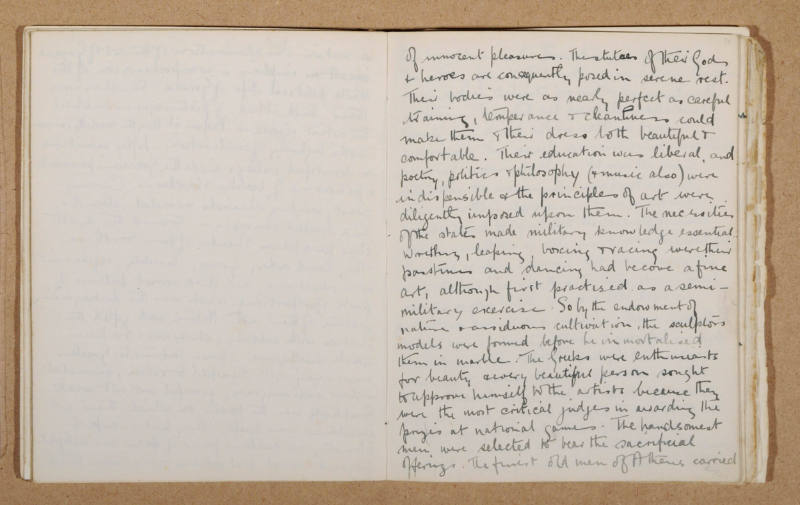 of innocent pleasures. The statues of their Gods
& heroes are consequently posed in serene rest.
Their bodies were as nearly perfect as careful
training, temperance & cleanliness could
make them & their dress both beautiful &
comfortable. Their education was liberal, and
poetry, politics & philosophy (& music also) were
indispensible & the principles of art were
diligently imposed upon them. The necessities
of the states made military knowledge essential.
Wrestling, leaping, boxing & racing were their
pastimes and dancing had become a fine
art, although first practised as a semi-
military exercise. So by the endowment of
nature & assiduous cultivation, the sculptors
models were formed before he immortalised
them in marble. The Greeks were enthusiasts
for beauty & every beautiful person sought
to approve himself to the artists because they
were the most critical judges in awarding the
prizes at national games. The handsomest
men were selected to bear the sacrificial
offerings. The finest old men of Athens carried